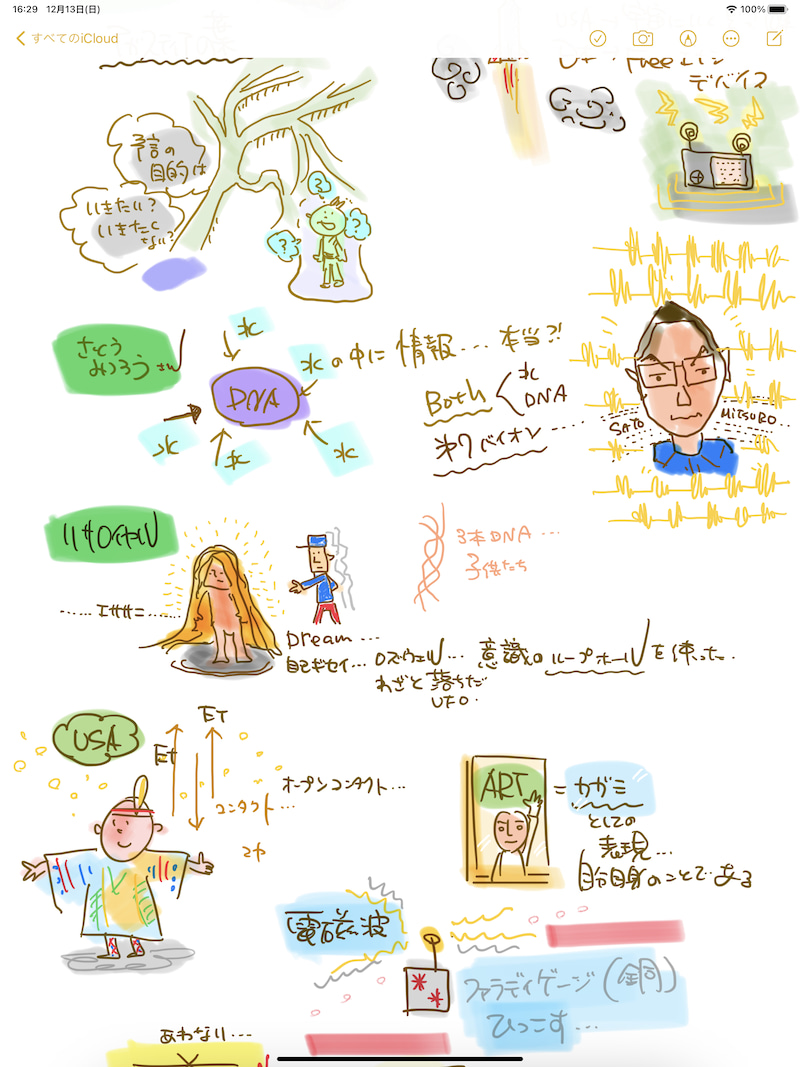 16:29 12月13日(日)
100%
すべてのiCloud
デバイス
予言の
目的は
いきたい?
いきたく
ない?
?
?
?
さとう
みつろうさん
水
水の中に情報... 本当?!
DNA
水
水
水
Both
水
DNA
オクバイオン...
SATO
MITSURO...
リサロイヤル
3本DNA...
子供たち
......エササニ......
Dream...
自己ギセイ...ロズウェル...
わざと落ちた
UFO.
意識のループホールを使った..
USA
ET
ET
オープンコンタクト...
コンタクト...
ART = カガミ
としての
表現...
自分自身のことである
電磁波
ファラディゲージ(銅)
ひっこす...
あわない...